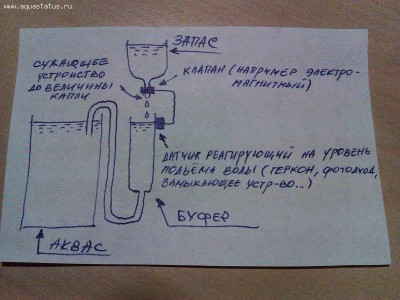 www.aquastatus.ru
ЗАПАС
СУЖАЮЩЕЕ
УСТРОЙСТВО
ДО ВЕЛИЧИНЫ
КАПЛИ
КЛАПАН (НАПРИМЕР ЭЛЕКТРО-
МАГНИТНЫЙ)
ДАТЧИК РЕАГИРУЮЩИЙ НА УРОВЕНЬ
ПОДЪЁМА ВОДЫ (ГЕРКОН, ФОТОДИОД,
ЗАМЫКАЮЩЕЕ УСТР-ВО...)
БУФЕР
АКВАС